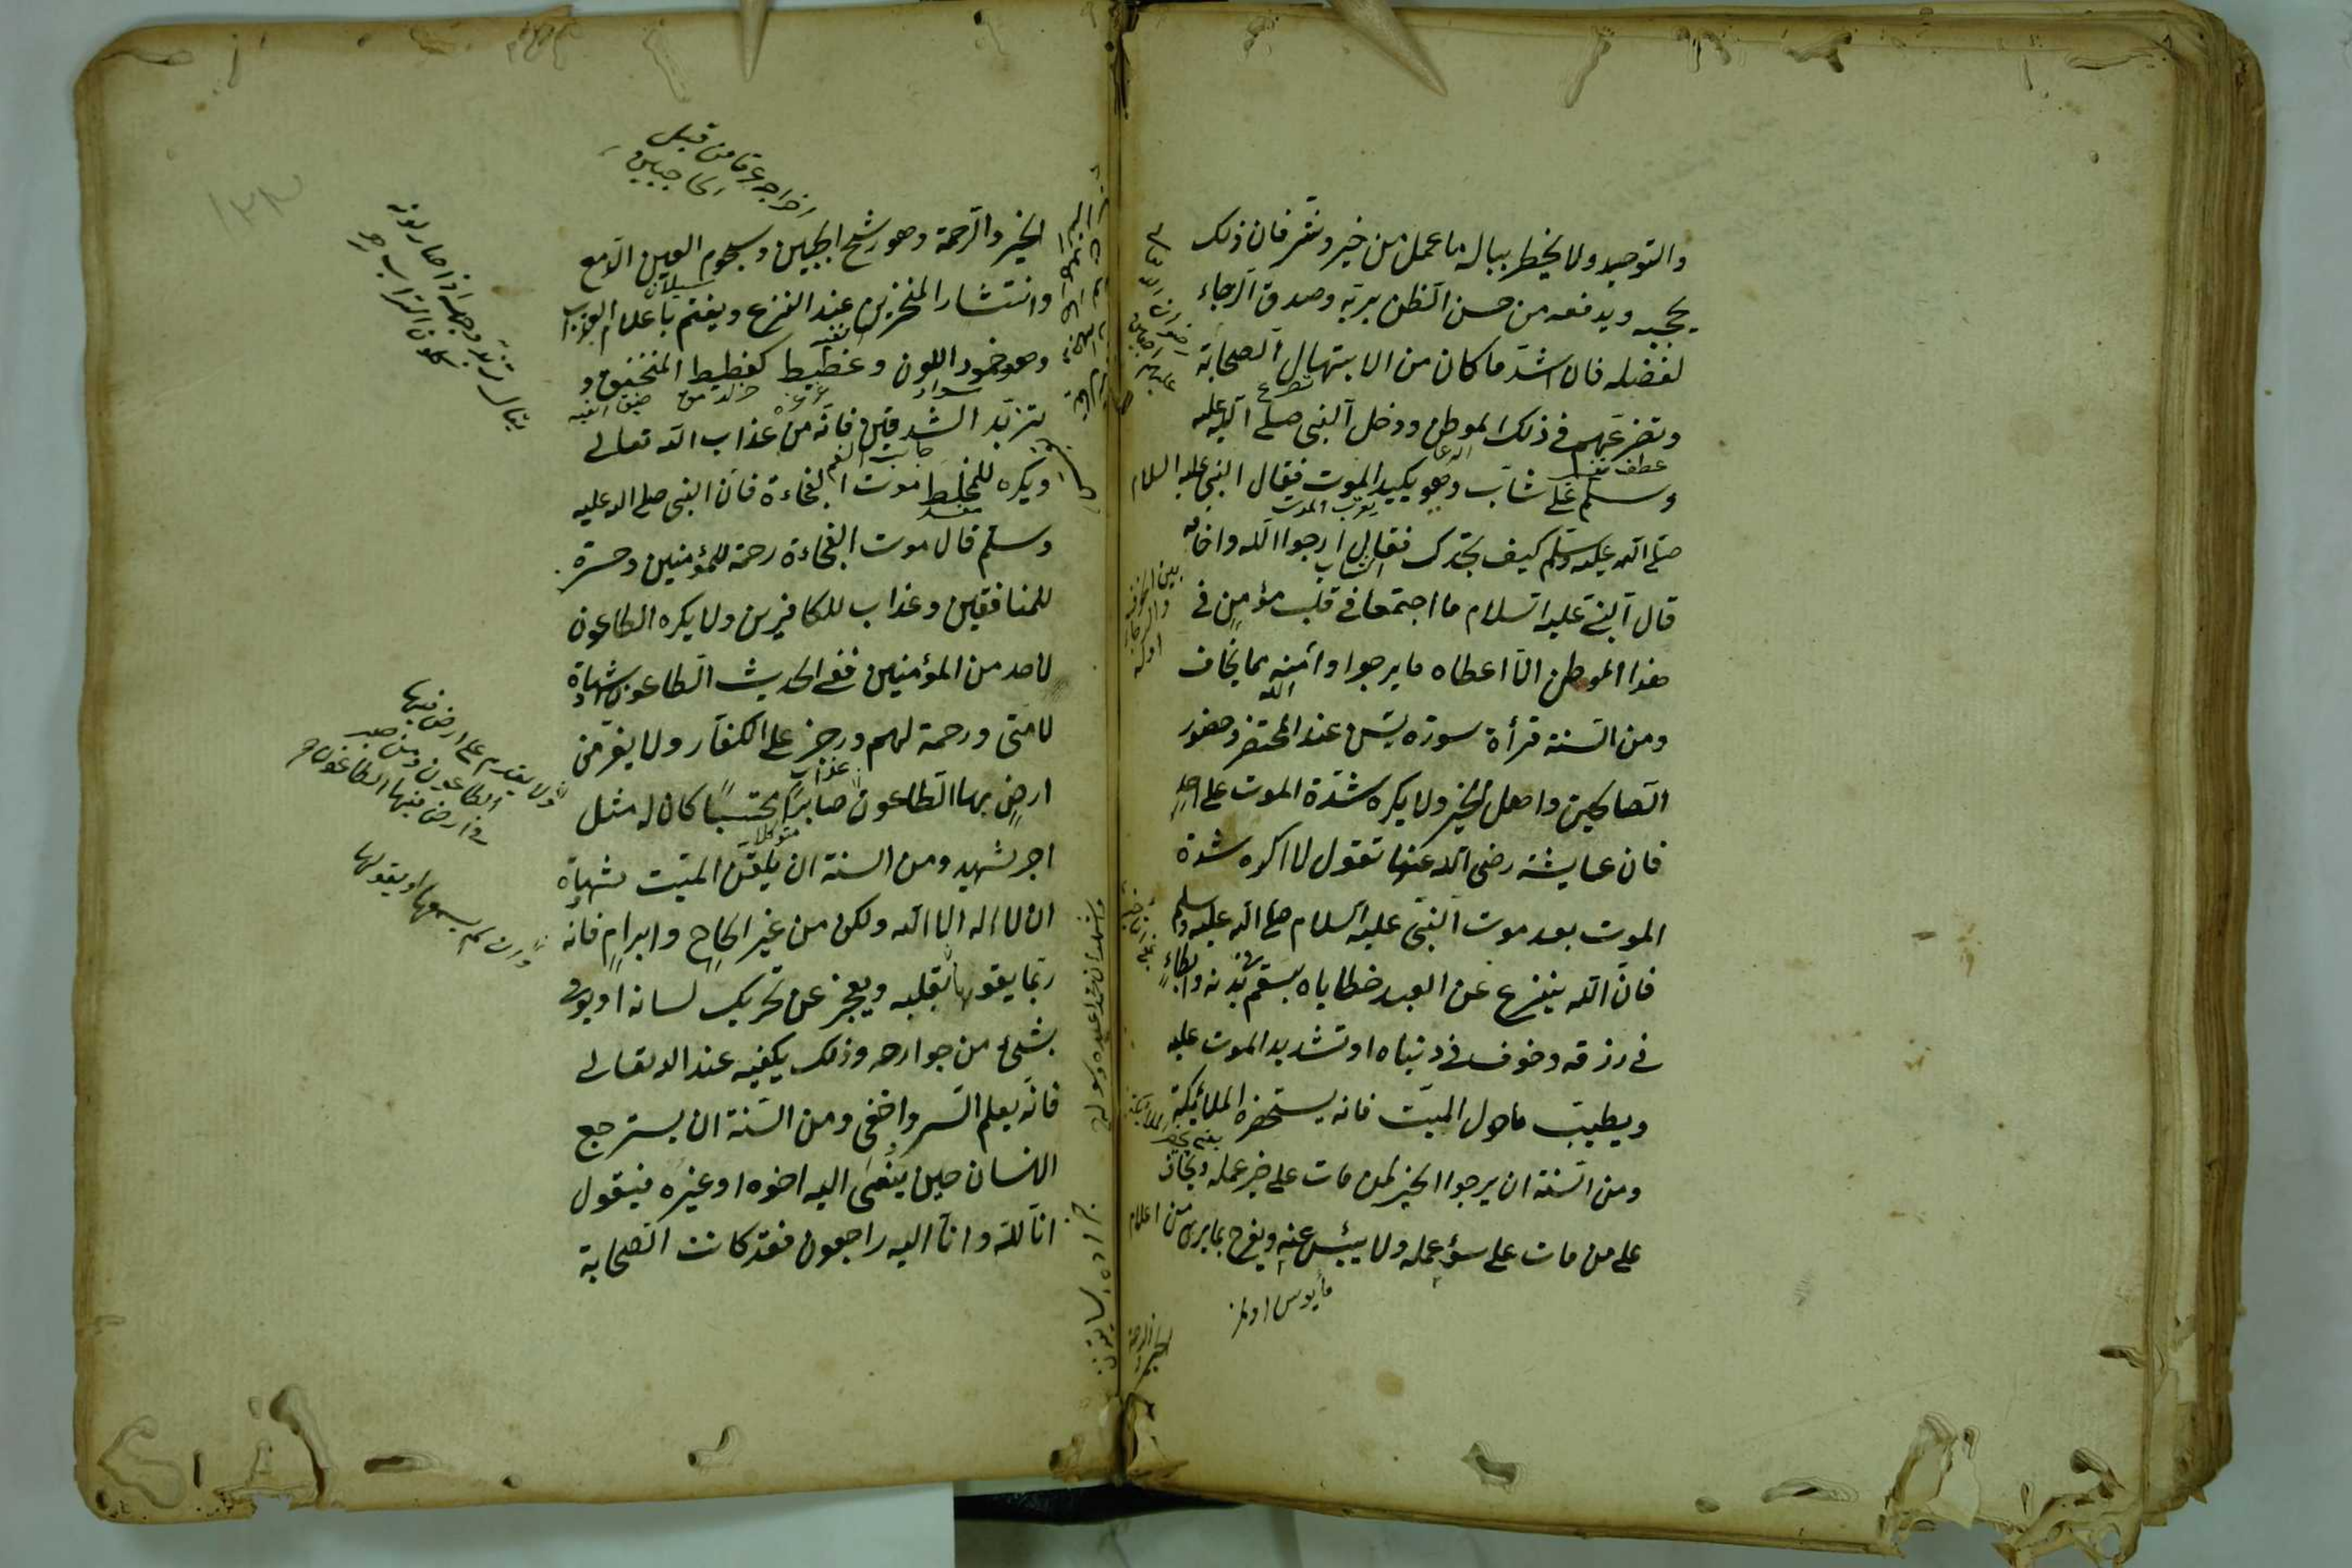 والتوحيد ولا يخطر بباله ما عمل من خير وشر فان ذلك
يحجبه ويدفعه من حسن الظن بربه وصدق الرجاء
لفضله فان اشد ما كان من الابتهال الصحابة
تضرع
وتضرعهم في ذلك الموطن ودخل النبي صلى الله عليه
عطف تفسير
وسلم على شاب وهو يكيد الموت فقال النبي عليه السلام
يقرب الموت
صلى الله عليه وسلم كيف تجدك فقال ارجوا الله واخافه
الشاب
قال النبي عليه السلام ما اجتمعا في قلب مؤمن في
هذا الموطن الا اعطاه ما يرجوا وآمنه مما يخاف
الله
ومن السنة قرأة سورة يس عند المحتضر وحضور
الصالحين واهل الخير ولا يكره شدة الموت على احد
فان عايشة رضي الله عنها تقول لا اكره شدة
الموت بعد موت النبي عليه السلام صلى الله عليه وسلم
فان الله ينزع عن العبد خطاياه بسقم في بدنه وابطاء
في رزقه وخوف في دنياه او تشديد الموت عليه
ويطيب ما حول الميت فانه يستحضره الملائكة
ومن السنة ان يرجوا الخير لمن مات على خير عمله ويخاف
على من مات على سوء عمله ولا ييئس عنه ويفرح بما يرى من اعلام
مأيوس اولمز
بين الخوف والرجاء
الخير والرحمة
اخراج عرقا من قبل
الحاجبين
الخير والرحمة وهو رشح الجبين وسجوم العين الدمع
سيلان
وانتشار المنخزين عند النزع ويغتم باعلام العذاب
وهو خمود اللون وغطيط كغطيط المنخنق و
سواد
ضيق النفس
تزبد الشدقين فانه من عذاب الله تعالى
جانب الفم
ويكره للمخلط موت الفجاءة فان النبي صلى الله عليه
مفسد
وسلم قال موت الفجاءة رحمة للمؤمنين وحسرة
للمنافقين وعذاب للكافرين ولا يكره الطاعون
لاحد من المؤمنين ففي الحديث الطاعون شهادة
لامتي ورحمة لهم ورجز على الكفار ولا يفر من
عذاب
ارض بها الطاعون صابرا محتسبا كان له مثل
متوكلا
اجر شهيد ومن السنة ان يلقن الميت شهادة
ان لا اله الا الله ولكن من غير الحاح وابرام فانه
ربما يقولها بقلبه ويعجز عن تحريك لسانه او يؤمي
بشئ من جوارحه وذلك يكفيه عند الله تعالى
فانه يعلم السر واخفى ومن السنة ان يسترجع
الانسان حين ينعى اليه اخوه او غيره فيقول
انا لله وانا اليه راجعون فقد كانت الصحابة
يقال تربد وجهه اذا صار لونه
كلون التراب
ولا يقدم على ارض فيها
الطاعون ومن صبر
في ارض فيها الطاعون
وان لم يسمعها او يقولها
واشهد ان محمدا عبده ورسوله
١٣٣